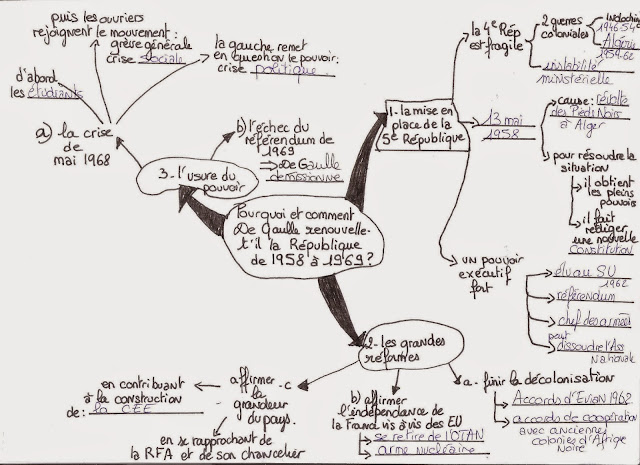 Pourquoi et comment
De Gaulle renouvelle-
t'il la République
de 1958 à 1969 ?
1- la mise en
place de la
5e République
la 4e Rép
est fragile
2 guerres
coloniales
Indochine
1946-54
Algérie
1954-62
instabilité
ministérielle
13 mai
1958
cause: révolte
des Pieds Noirs
à Alger
pour résoudre la
situation
il obtient
les pleins
pouvoirs
il fait
rédiger
une nouvelle
constitution
un pouvoir
exécutif
fort
élu au SU
1962
référendum
chef des armées
peut
dissoudre l'Ass
Nationale
2- les grandes
réformes
a- finir la décolonisation
Accords d'Evian 1962
accords de coopération
avec anciennes
colonies d'Afrique
Noire
b) affirmer
l'indépendance de
la France vis à vis des EU
se retire de l'OTAN
arme nucléaire
affirmer -c
la
grandeur
du pays.
en contribuant
à la construction
de: la CEE
en se rapprochant de
la RFA et de son chancelier
3- l'usure du
pouvoir
a) la crise
de
mai 1968
d'abord
les étudiants
puis les ouvriers
rejoignent le mouvement:
grève générale
crise sociale
la gauche remet
en question le pouvoir:
crise politique.
b) l'échec du
référendum de
1969
De Gaulle
démissionne